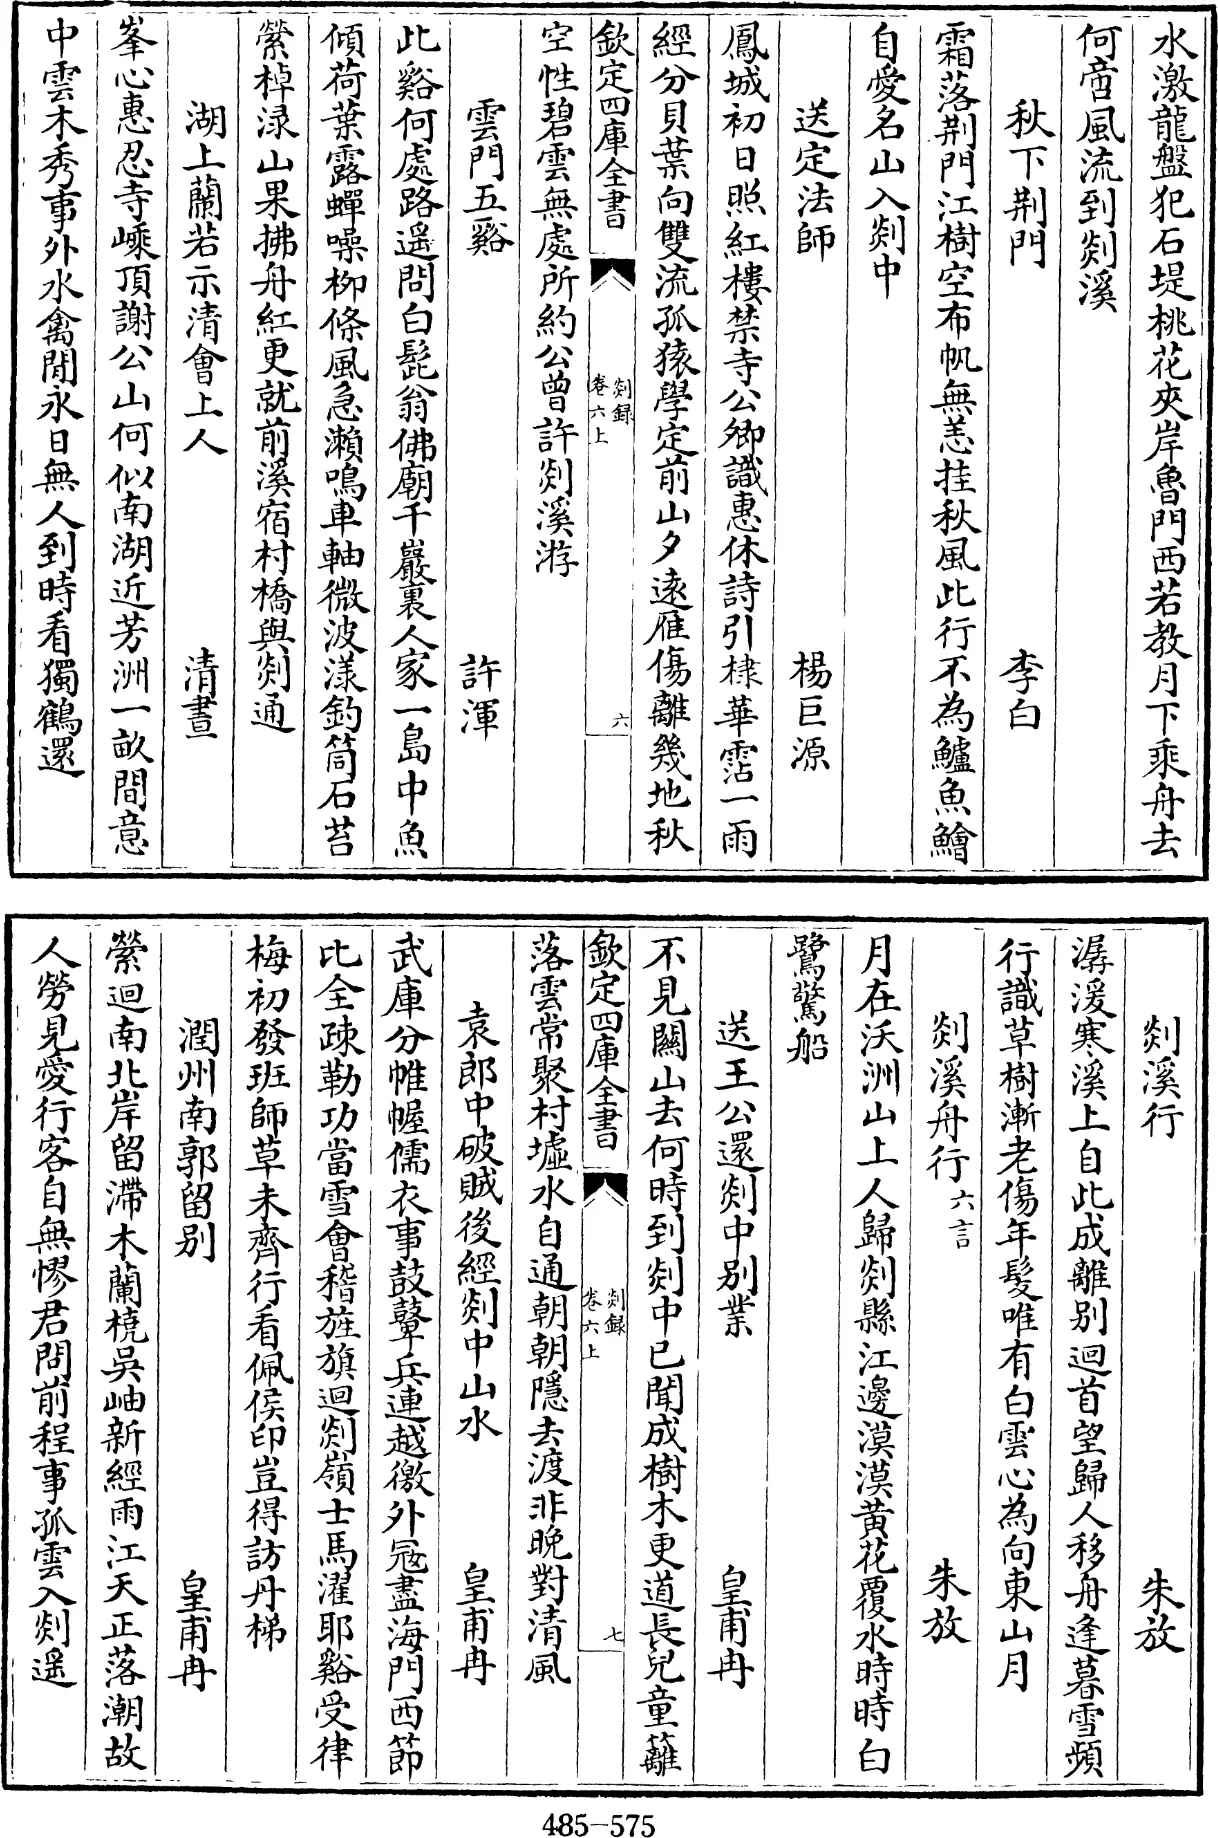 水激龍盤犯石堤桃花夾岸魯門西若教月下乘舟去
何啻風流到剡溪
秋下荆門 李白
霜落荆門江樹空布帆無恙挂秋風此行不為鱸魚鱠
自愛名山入剡中
送定法師 楊巨源
鳳城初日照紅樓禁寺公卿識惠休詩引棣華霑一雨
經分貝葉向雙流孤猿學定前山夕遠雁傷離幾地秋
欽定四庫全書 剡録 卷六上 六
空性碧雲無處所約公曾許剡溪游
雲門五谿 許渾
此谿何處路遥問白髭翁佛廟千巖裏人家一島中魚
傾荷葉露蟬噪柳條風急瀨鳴車軸微波漾釣筒石苔
縈棹渌山果拂舟紅更就前溪宿村橋與剡通
湖上蘭若示清會上人 清晝
峯心惠忍寺嵊頂謝公山何似南湖近芳洲一畝間意
中雲木秀事外水禽閒永日無人到時看獨鶴還
剡溪行 朱放
潺湲寒溪上自此成離别迴首望歸人移舟逢暮雪頻
行識草樹漸老傷年髮唯有白雲心為向東山月
剡溪舟行六言 朱放
月在沃洲山上人歸剡縣江邊漠漠黄花覆水時時白
鷺驚船
送王公還剡中别業 皇甫冉
不見關山去何時到剡中已聞成樹木更道長兒童籬
欽定四庫全書 剡録 卷六上 七
落雲常聚村墟水自通朝朝隱去渡非晚對清風
袁郎中破賊後經剡中山水 皇甫冉
武庫分帷幄儒衣事鼓鼙兵連越徼外冦盡海門西節
比全疎勒功當雪會稽旌旗迴剡嶺士馬濯耶谿受律
梅初發班師草未齊行看佩侯印豈得訪丹梯
潤州南郭留别 皇甫冉
縈迴南北岸留滯木蘭橈吳岫新經雨江天正落潮故
人勞見愛行客自無憀君問前程事孤雲入剡遥
485-575